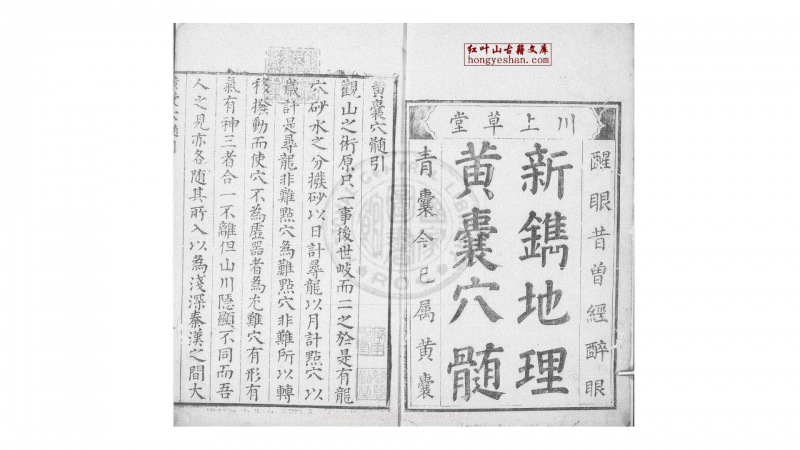 红叶山古籍文库
hongyeshan.com
川上草堂
醒眼昔曾經醉眼
新鐫地理
黃囊穴髓
青囊今已属黄囊
黃囊穴髓引
觀山之術原只一事後世岐而二之於是有龍
穴砂水之分撥砂以日計尋龍以月計點穴以
歲計是尋龍非難點穴為難點穴非難所以轉
移撥動而使穴不為虛器者為尤難穴有形有
氣有神三者合一不離但山川隱顯不同而吾
人之見亦各随其所入以為淺深秦漢之間大